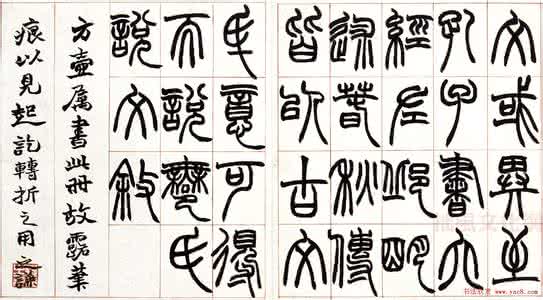 文或異至
孔子書六
經左邱朙
述春秋傳
皆以古文
氒意可得
而說鄦氏
說文敘
方壺屬書此冊故露筆
痕以見起訖轉折之用之謙